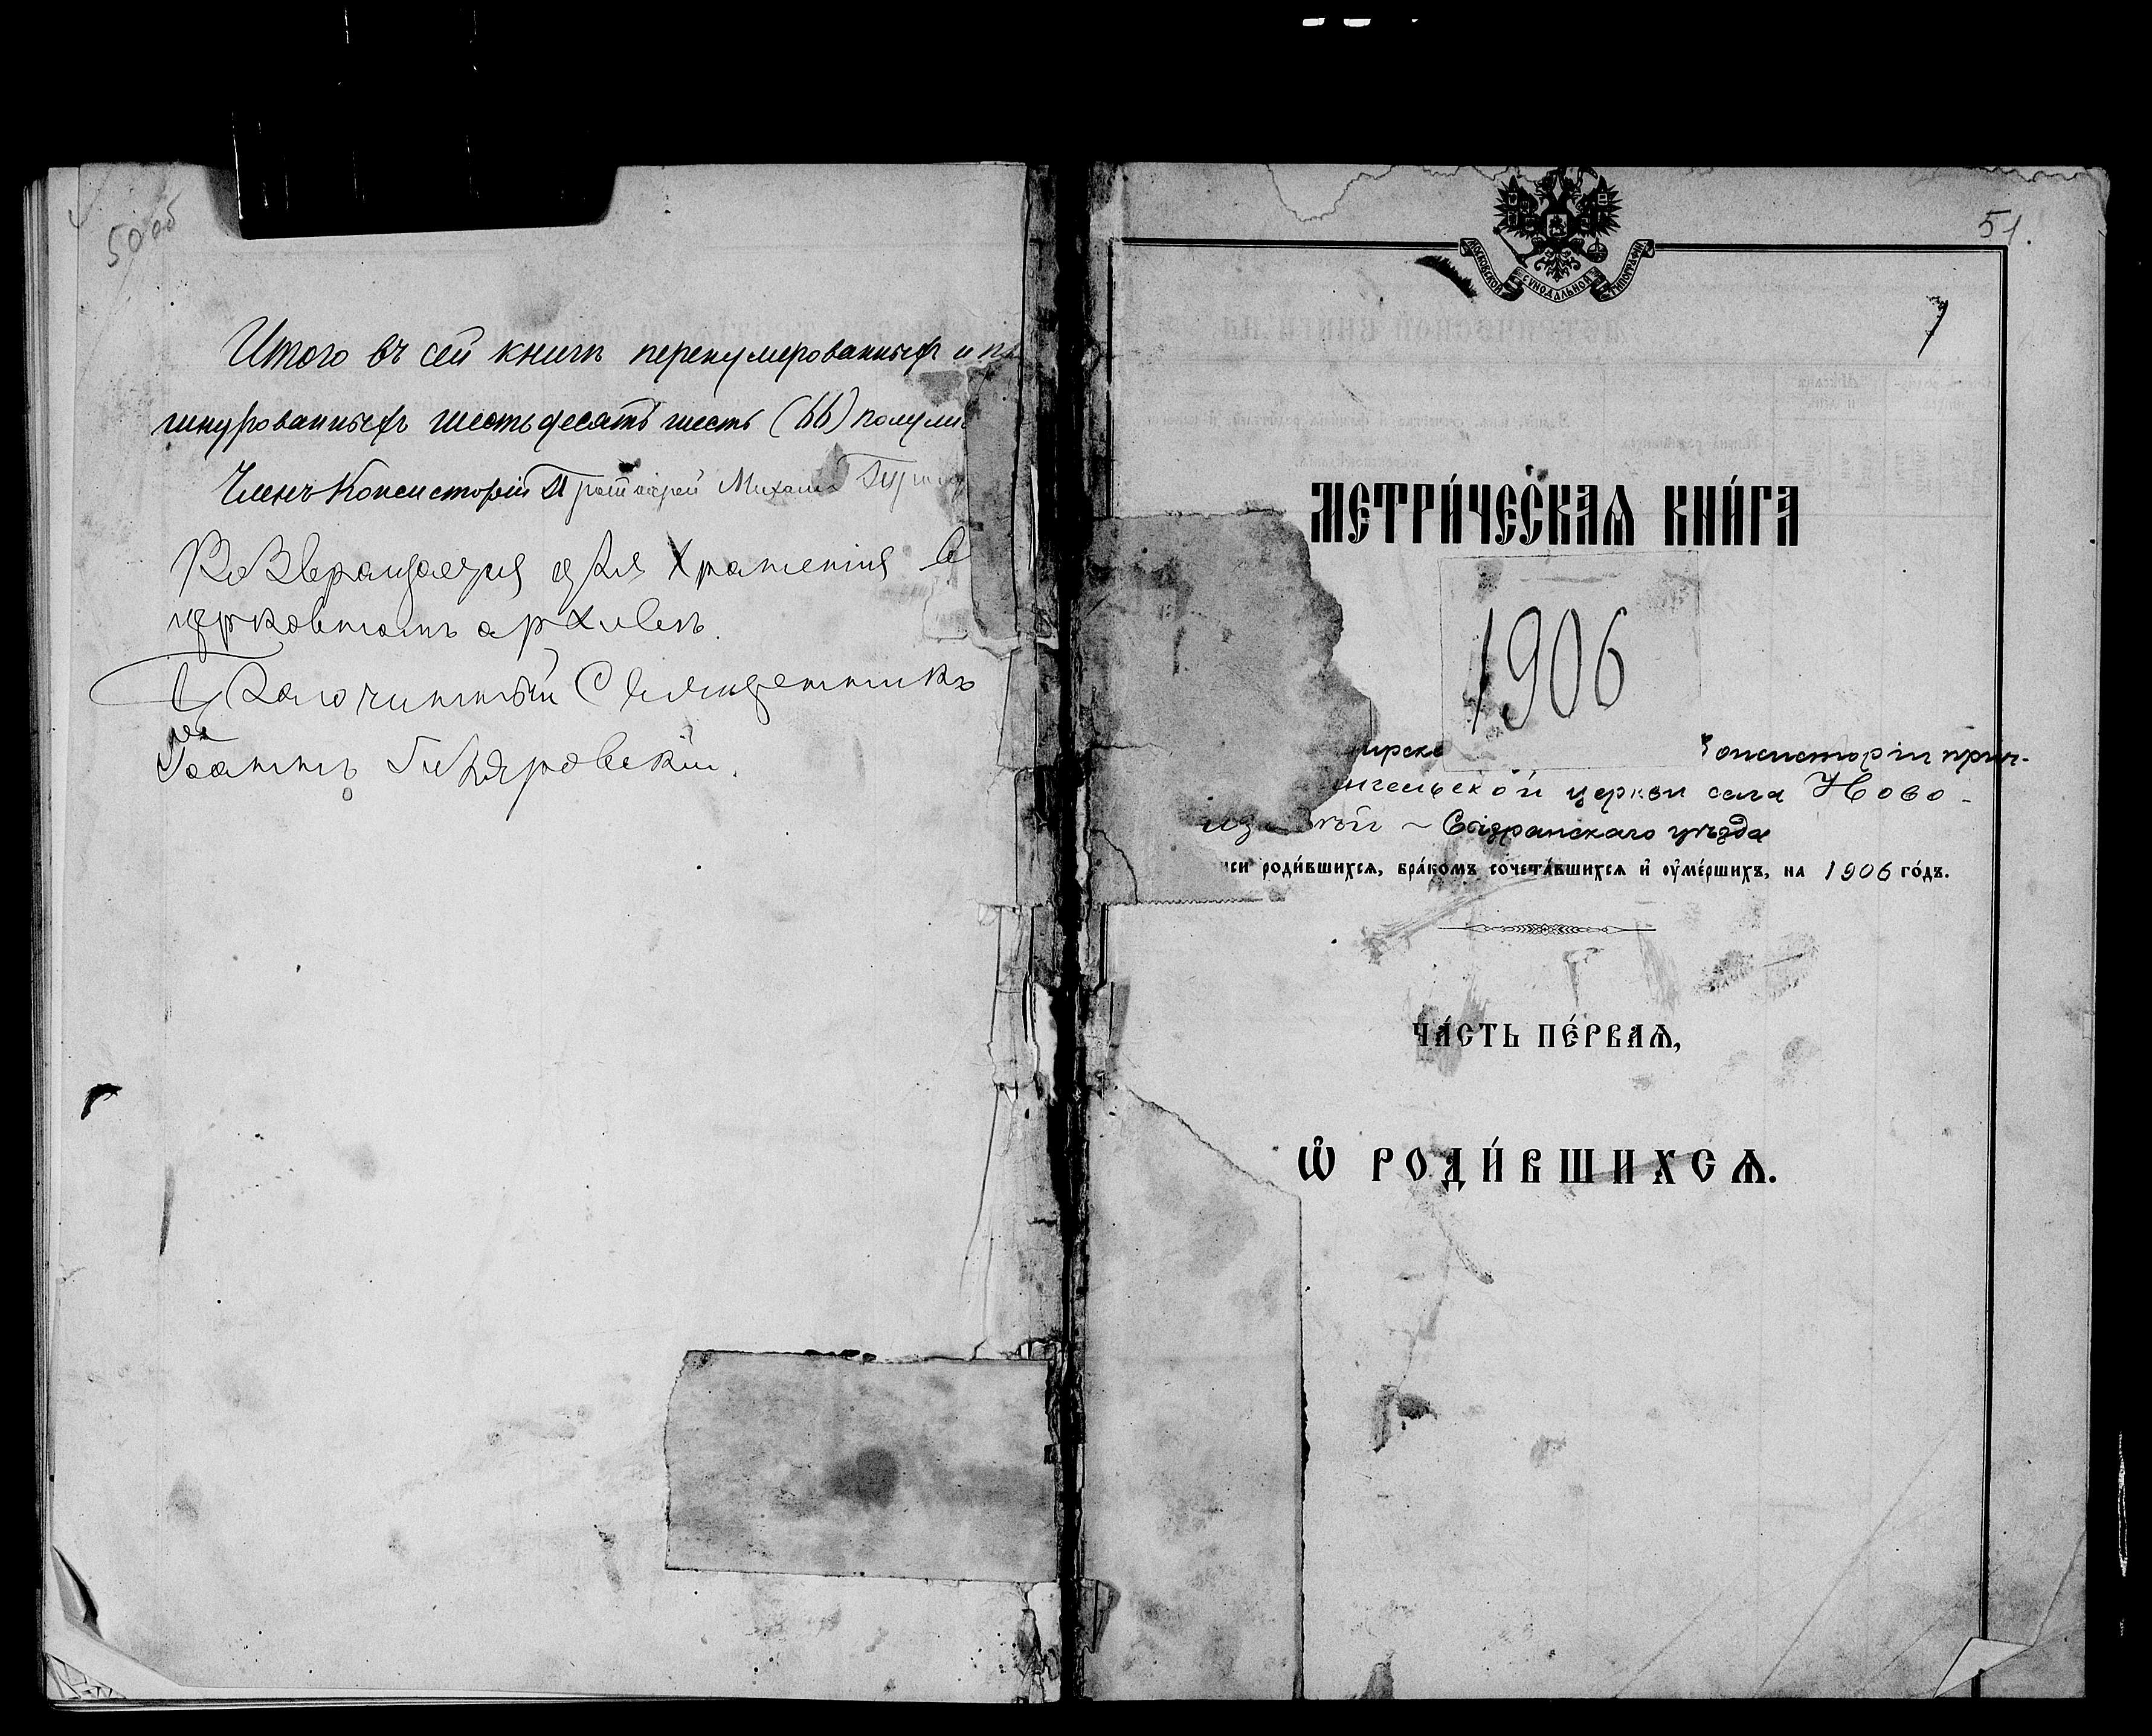 50 об
Итого въ сей книгѣ перенумерованныхъ и
шнурованныхъ шестьдесятъ шесть (66)
Членъ Консисторіи Протоіерей Михаилъ
Возвращается для храненія в
церковномъ архивѣ.
Благочинный Священникъ
Іоаннъ Гиляровскій.
51.
МОСКОВСКОЙ СѴНОДАЛЬНОЙ ТИПОГРАФІИ
МЕТРИ́ЧЕСКАѦ КНИ́ГА
1906
Консисторіи прич-
церкви села Ново-
Сызранскаго уѣзда
роди́вшихсѧ, бра́комъ сочета́вшихсѧ и҆ ᲂу҆ме́ршихъ, на 1906 го́дъ.
ЧА́СТЬ ПЕ́РВАѦ,
Ѡ҆ РОДИ́ВШИХСѦ.